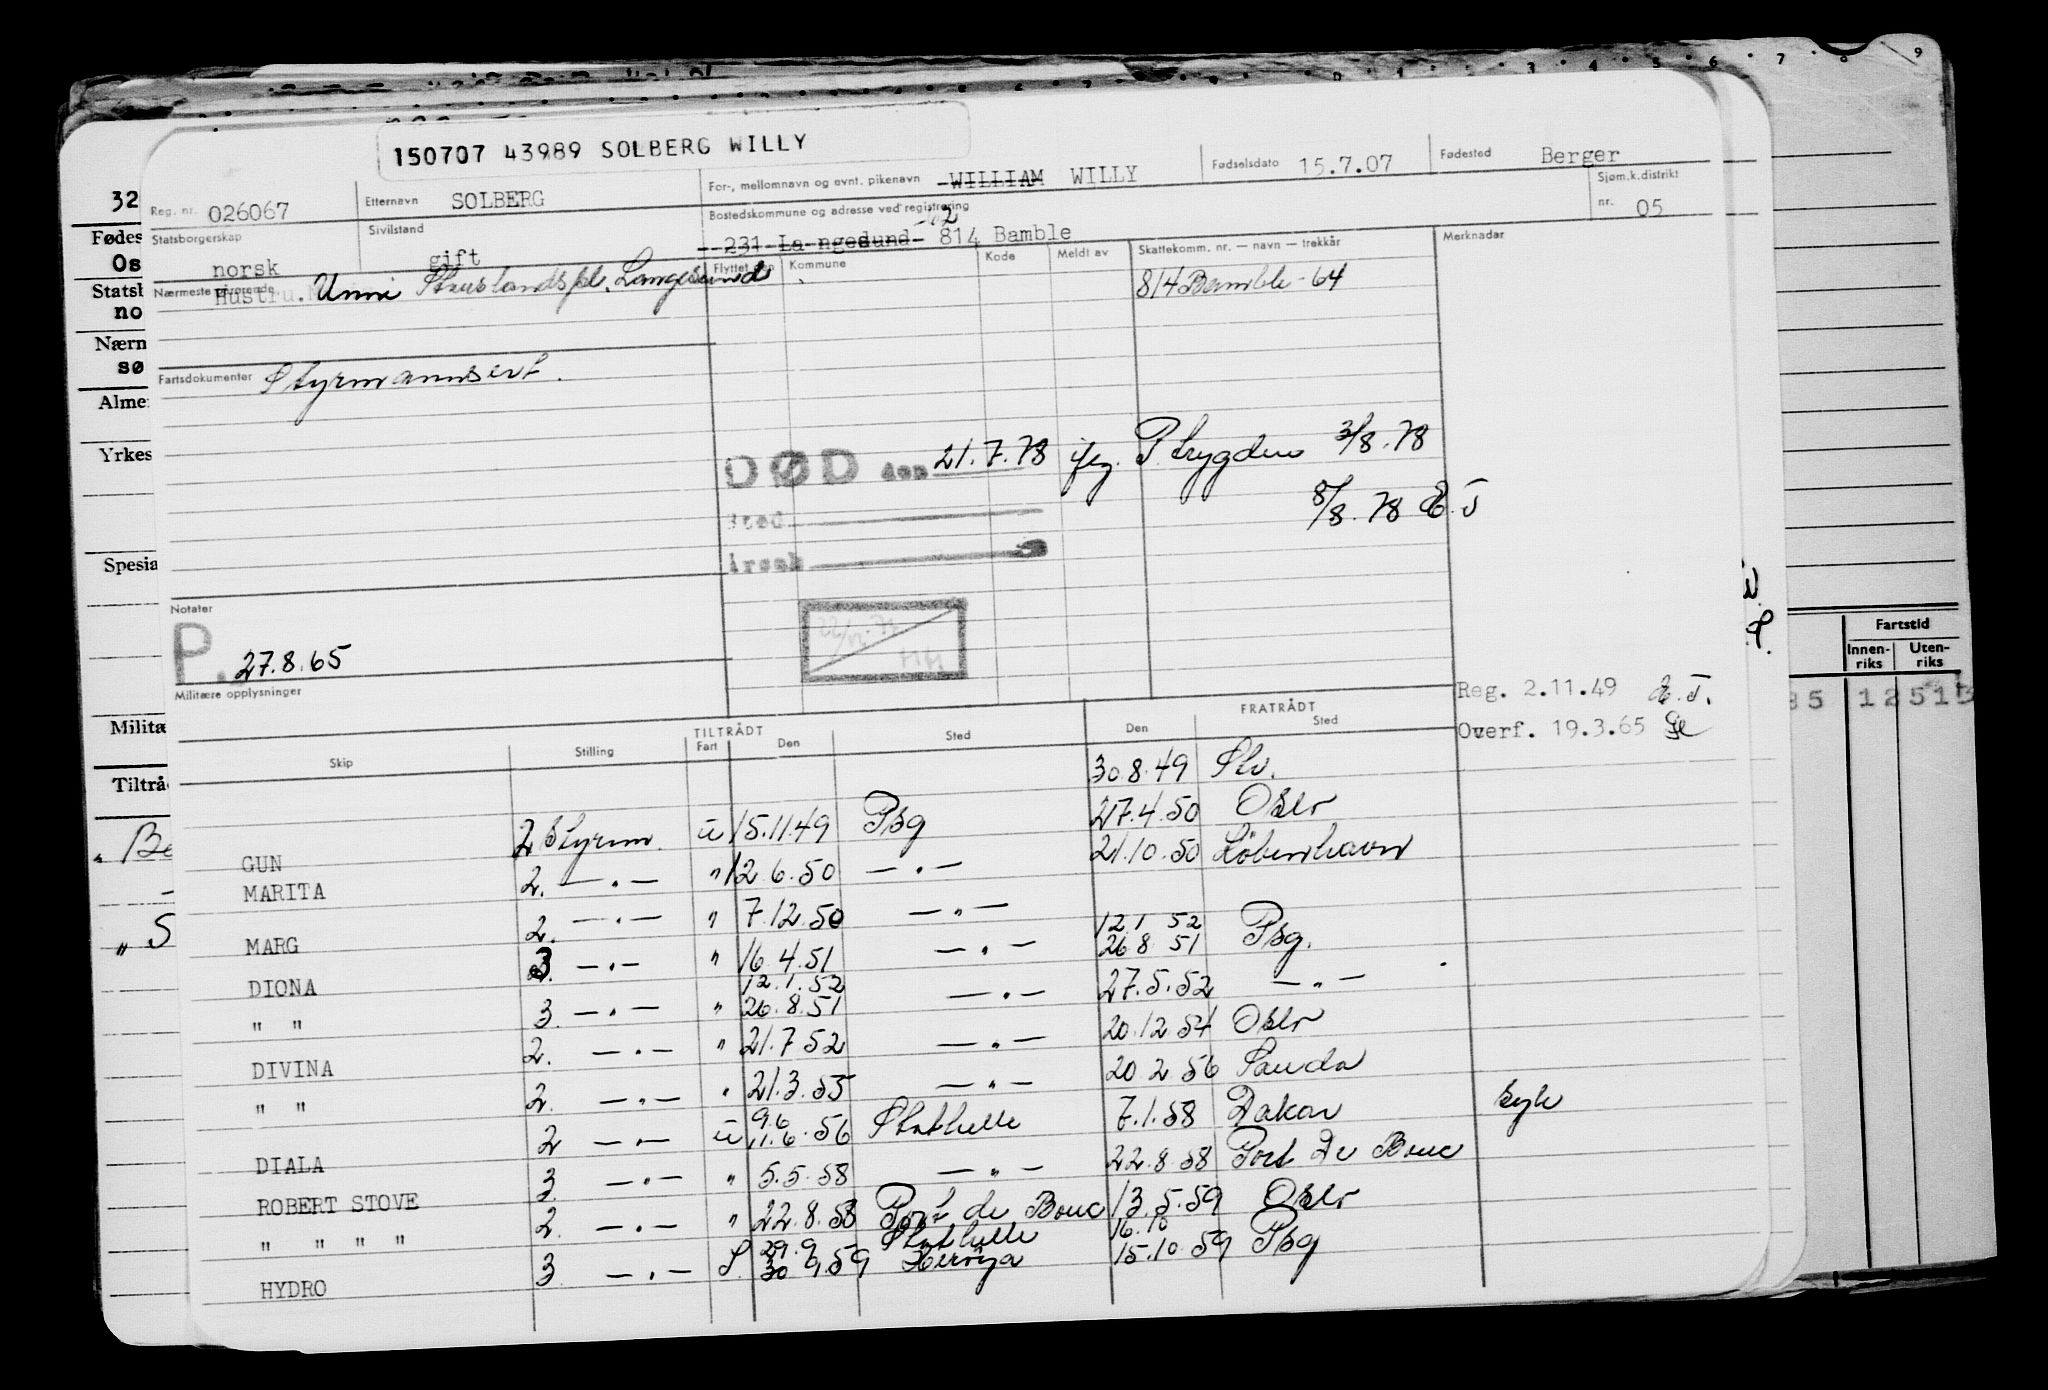 150707 43989 SOLBERG WILLY
Reg. nr. 026067
Etternavn SOLBERG
For-, mellomnavn og evnt. pikenavn WILLIAM WILLY
Fødselsdato 15.7.07
Fødested Berger
Statsborgerskap norsk
Sivilstand gift
Bostedskommune og adresse ved registrering
231 Langesund 814 Bamble
Sjøm.k.distrikt nr. 05
Nærmeste pårørende Hustru. Unni Langesund
Flyttet den Kommune Kode Meldt av
Skattekomm. nr. — navn — trekkår
814 Bamble - 64
Merknader
Fartsdokumenter Styrmannsert.
DØD den 21.7.78 P. trygden 3/8.78
8/8.78 E.T
Sted
Årsak
Notater
P. 27.8.65
Militære opplysninger
Reg. 2.11.49 E.T.
Overf. 19.3.65
Skip Stilling TILTRÅDT Fart Den Sted FRATRÅDT Den Sted
30.8.49
GUN 2 Styrm. u 15.11.49 Psg 27.4.50 Oslo
MARITA 2. — . — " 12.6.50 — . — 21.10.50 København
MARG 2. — . — " 7.12.50 — " —
DIONA 3. — . — " 16.4.51 — . — 12.1 52 26 8 51 Psg.
" " 3. — . — " 12.1.52 26.8.51 — . — 27.5.52 — " —
DIVINA 2. — . — " 21.7 52 — . — 20.12 54 Oslo
" " 2. — . — " 21.3.55 — " — 20 2 56 Sauda
DIALA 2 — . — u 9.6 11.6.56 Stathelle 7.1.58 Dakar syk
ROBERT STOVE 3. — . — " 5.5.58 — " — 22.8.58 Port De Bouc
" " " " 2. — . — " 22.8.58 Port de Bouc 13.5.59 Oslo
HYDRO 3. — . — S. 29.9 30 9.59 Stathelle Herøya 16.10 15.10 59 Psg
32
Fødes
Os
Statsb
no
Nærn
sø
Alme
Yrkes
Spesia
Militæ
Tiltrå
Be
" S
Fartstid
Innen-riks Uten-riks